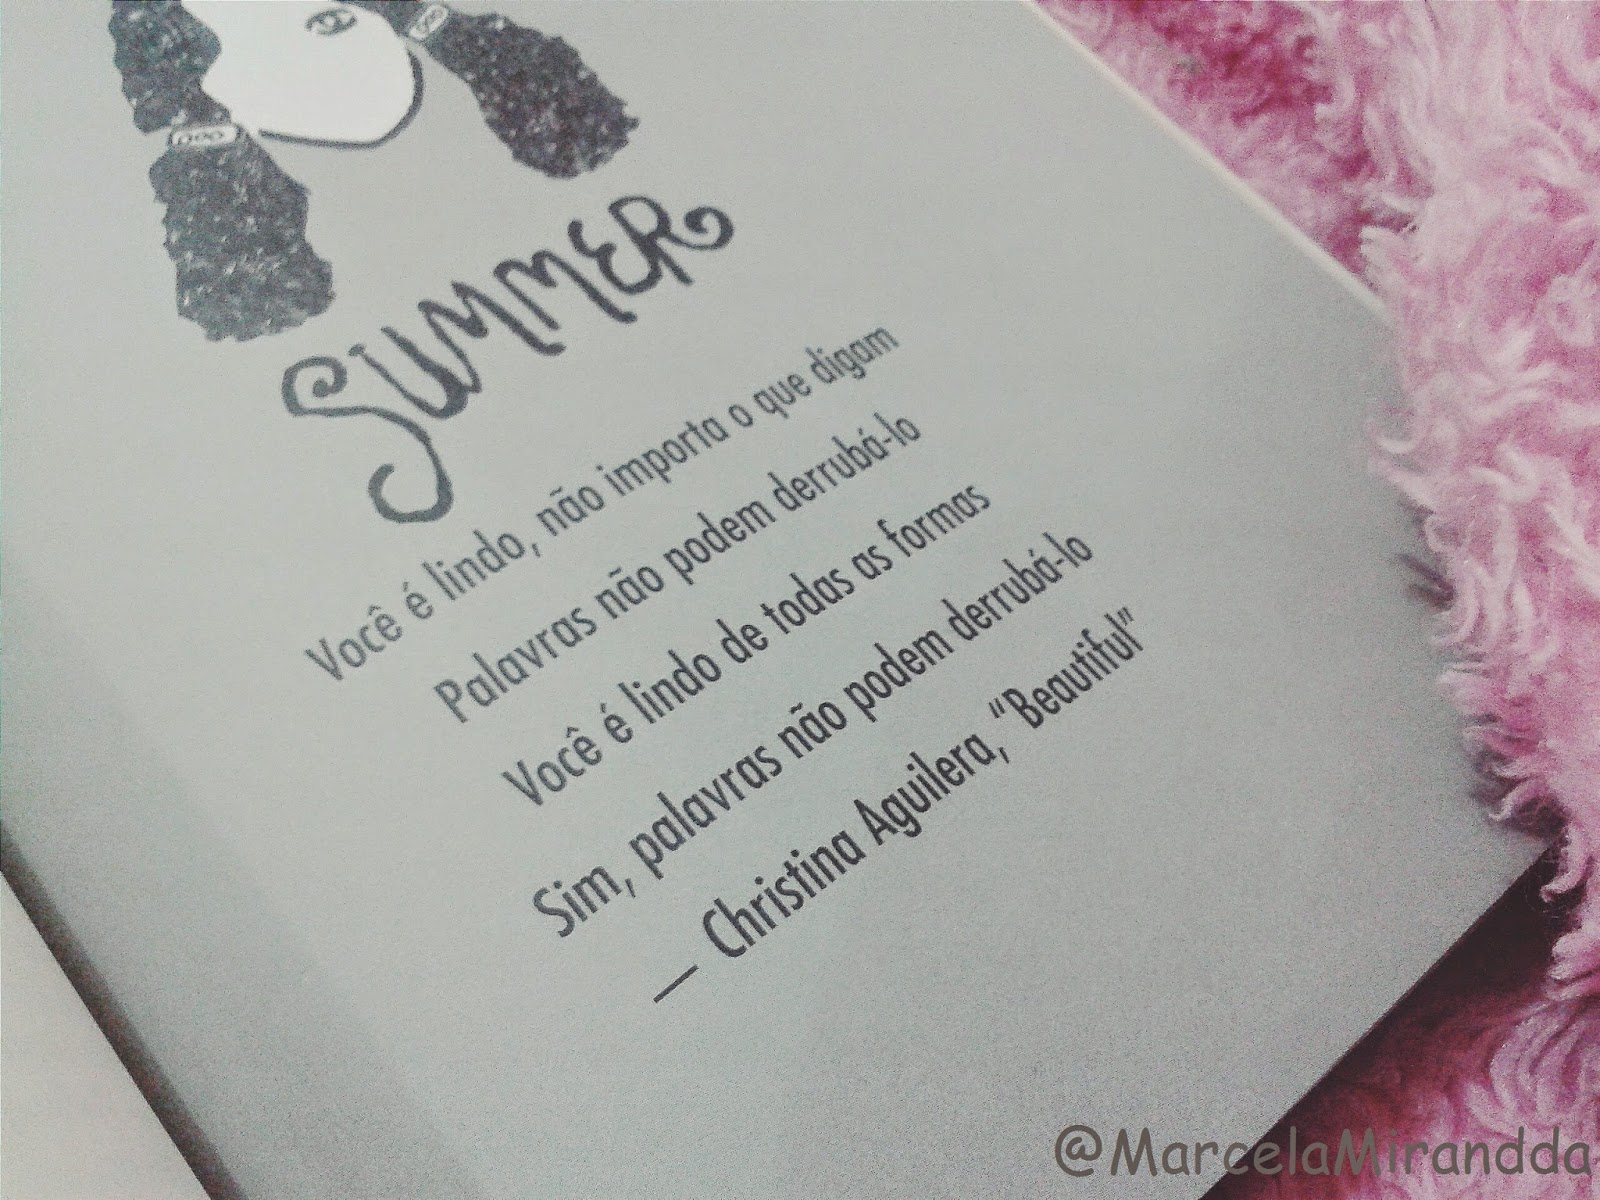 SUMMER
Você é lindo, não importa o que digam
Palavras não podem derrubá-lo
Você é lindo de todas as formas
Sim, palavras não podem derrubá-lo
— Christina Aguilera, “Beautiful”
@MarcelaMirandda